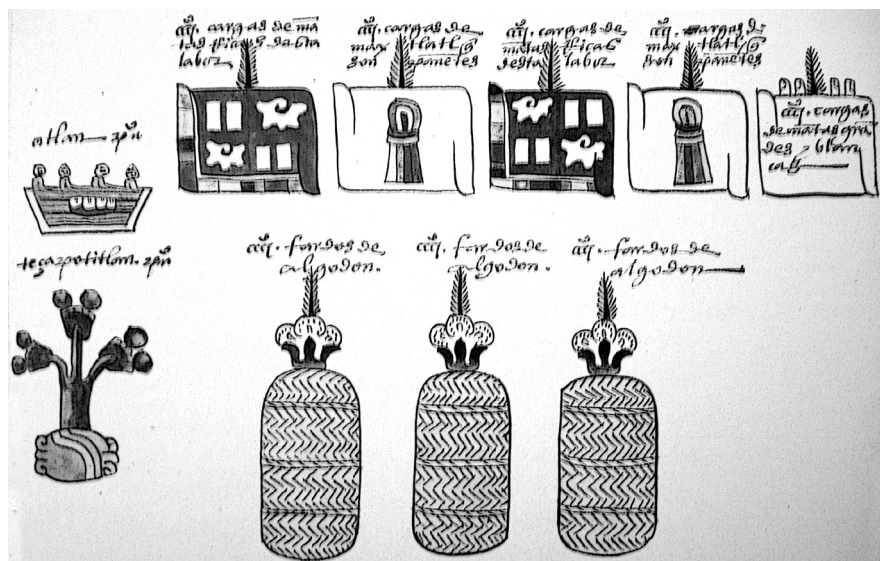 cargas de ma
tas ricas desta
labor
cargas de
maxtlatl q̃
son panetes
cargas de
matas ricas
desta labor
cargas d
maxtlatl q̃
son panetes
cargas
de matas gra
des blan
cas
atlan
teçapotitlan
fardos de
algodon.
fardos de
algodon.
fardos de
algodon